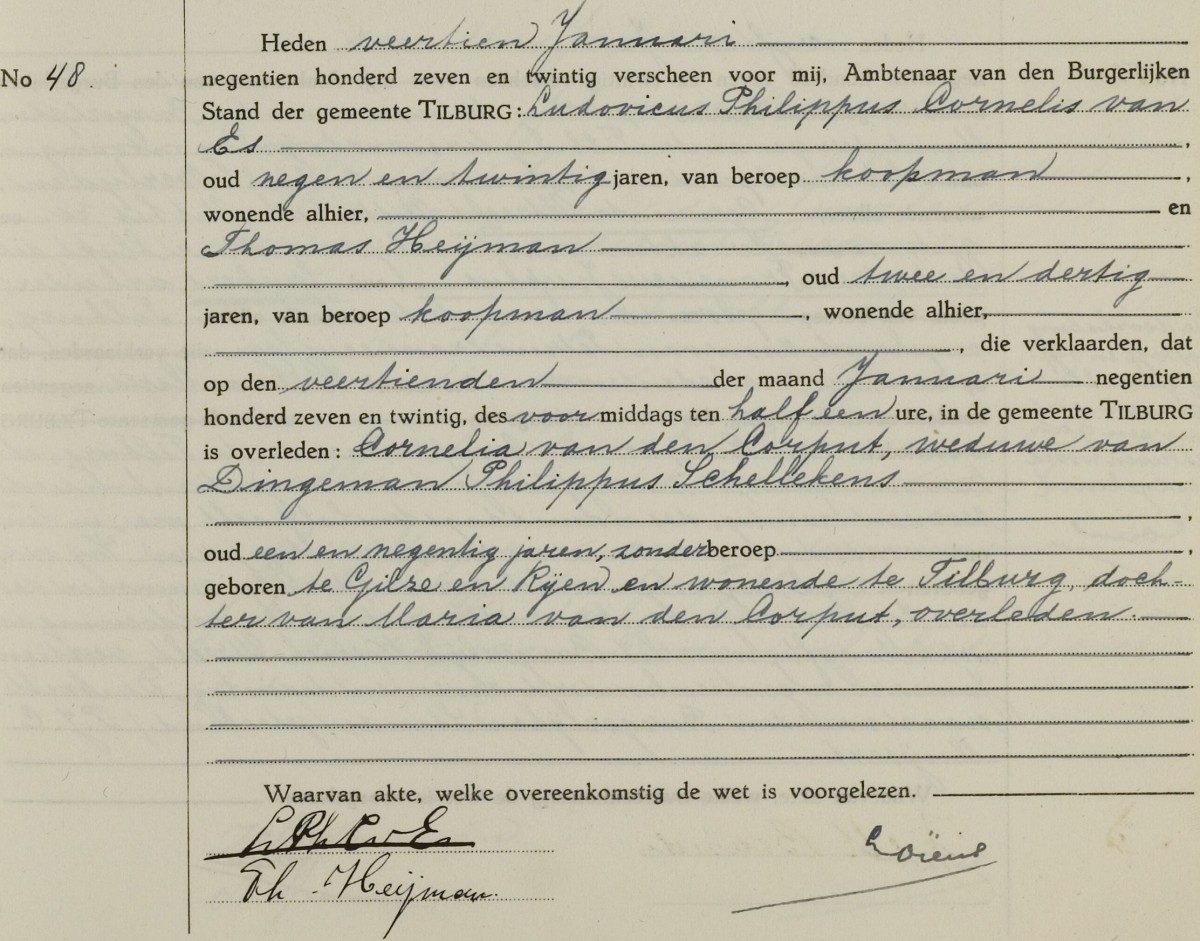 Heden veertien Januari
No 48.
negentien honderd zeven en twintig verscheen voor mij, Ambtenaar van den Burgerlijken
Stand der gemeente TILBURG: Ludovicus Philippus Cornelis van
Es ,
oud negen en twintig jaren, van beroep koopman ,
wonende alhier, en
Thomas Heijman
, oud twee en dertig
jaren, van beroep koopman , wonende alhier,
, die verklaarden, dat
op den veertienden der maand Januari negentien
honderd zeven en twintig, des voormiddags ten half een ure, in de gemeente TILBURG
is overleden: Cornelia van den Corput, weduwe van
Dingeman Philippus Schellekens
,
oud een en negentig jaren, zonder beroep ,
geboren te Gilze en Rijen en wonende te Tilburg, doch-
ter van Maria van den Corput, overleden.
Waarvan akte, welke overeenkomstig de wet is voorgelezen.
L Ph C v Es
Th. Heijman.